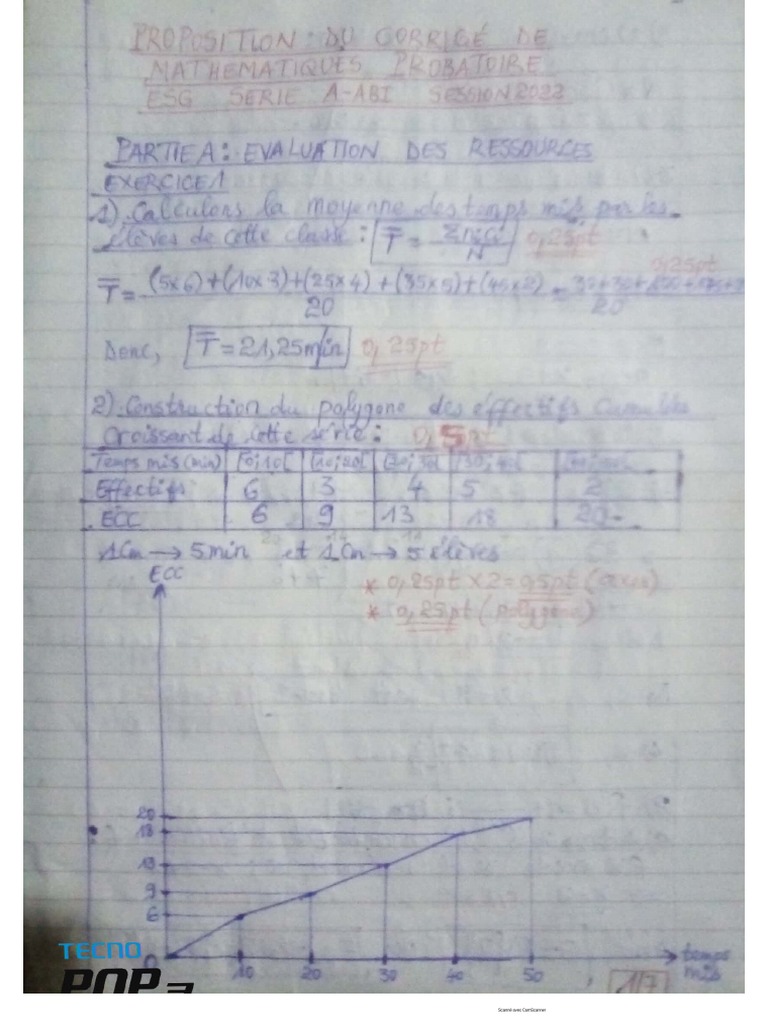 PROPOSITION DU CORRIGÉ DE
MATHEMATIQUES PROBATOIRE
ESG SERIE A-ABI SESSION 2022
PARTIE A : EVALUATION DES RESSOURCES
EXERCICE 1
1) Calculons la moyenne des temps mis par les
élèves de cette classe : T̅ = Σnici / N 0,25pt
0,25pt
T̅ = (5x6)+(10x3)+(25x4)+(35x5)+(45x2) / 20 =
20
Donc, T̅ = 21,25min 0,25pt
2) Construction du polygone des effectifs cumulés
croissant de cette série : 0,5pt
Temps mis (min) [0;10[ [10;20[
Effectifs 6 3 4 5 2
ECC 6 9 13 18 20
1Cm → 5min et 1Cm → 5 élèves
ECC
* 0,25pt x 2 = 0,5pt (axes)
* 0,25pt (polygone)
20
18
13
9
6
0 10 20 30 40 50 temps
mis
1/7
TECNO
POP 3
Scanné avec CamScanner